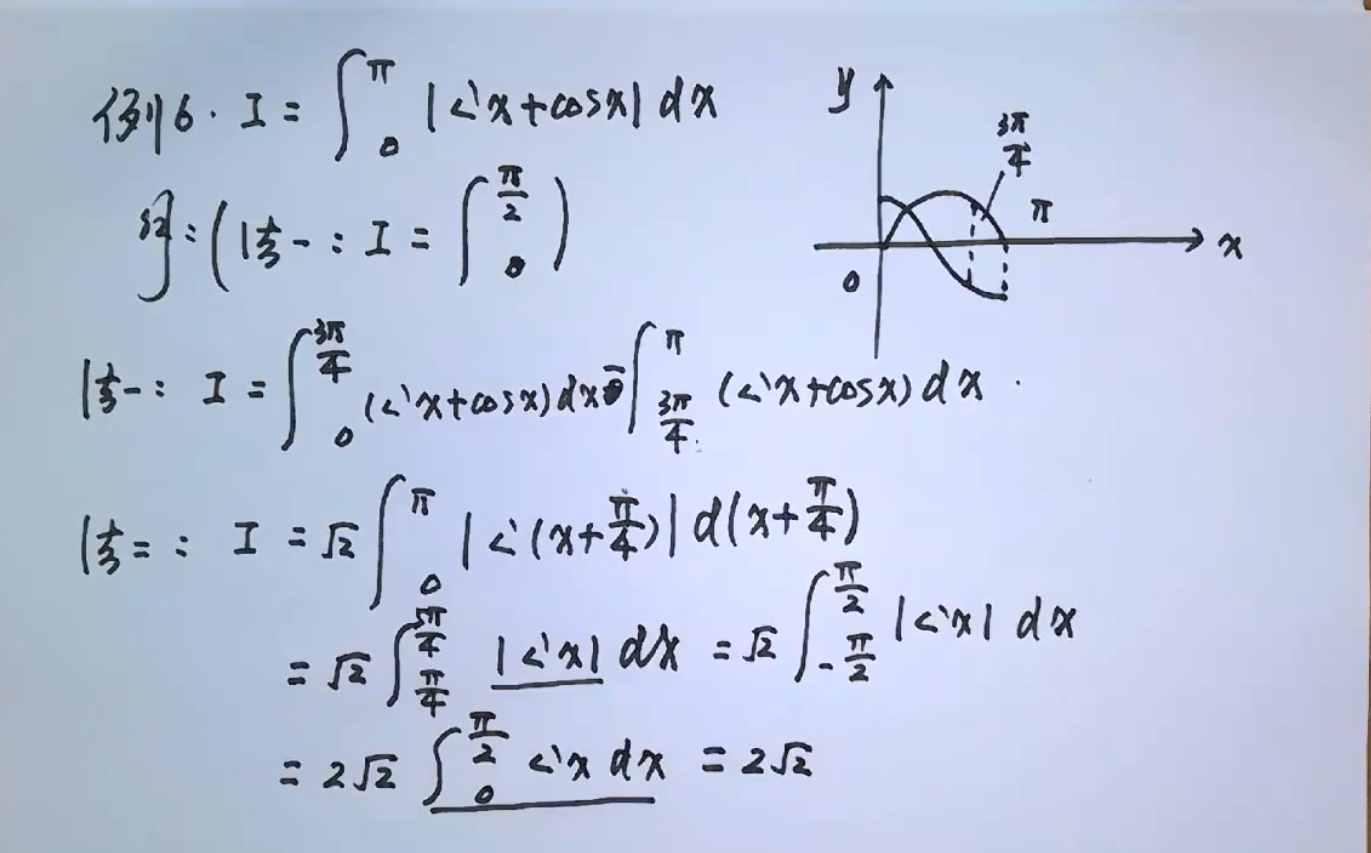 例6. I = ∫₀^π |sinx+cosx| dx
解:(法一: I = ∫₀^{π/2})
法一: I = ∫₀^{3π/4} (sinx+cosx)dx - ∫_{3π/4}^π (sinx+cosx)dx.
法二: I = √2 ∫₀^π |sin(x+π/4)| d(x+π/4)
= √2 ∫_{π/4}^{5π/4} |sinx| dx = √2 ∫_{-π/2}^{π/2} |sinx| dx
= 2√2 ∫₀^{π/2} sinx dx = 2√2
y
3π/4
π
x
0